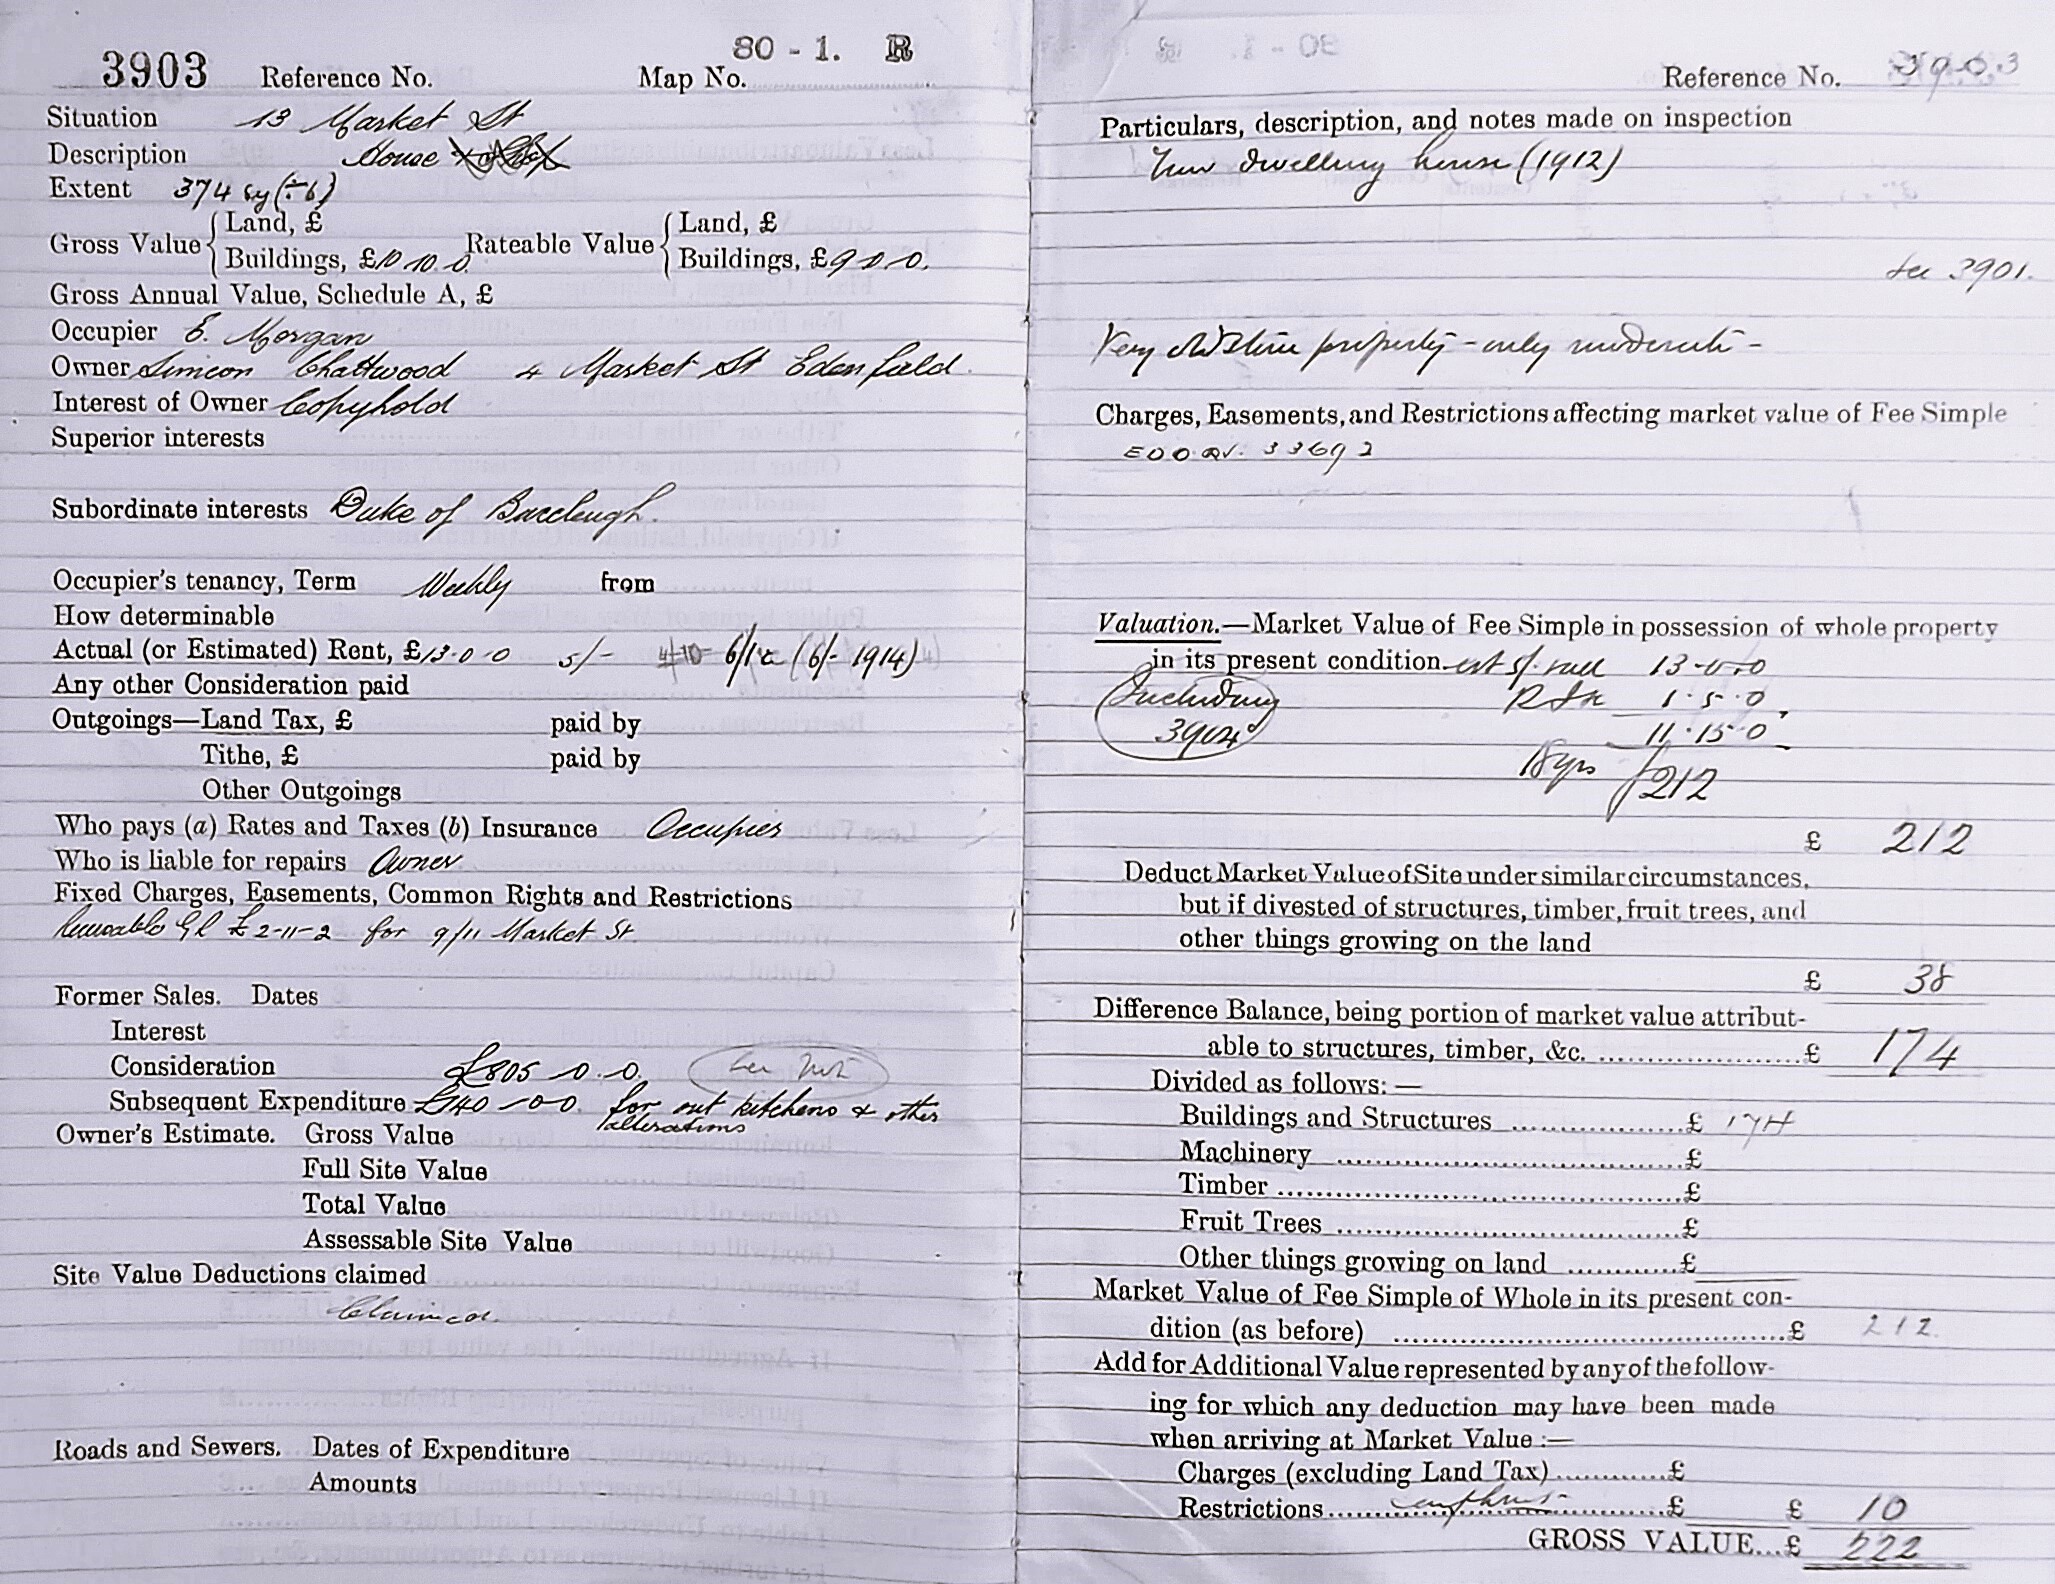 80 - 1. R
3903 Reference No. Map No.
Situation 13 Market St
Description House
Extent 374 sy (÷6)
Gross Value Land, £ Rateable Value Land, £
Buildings, £10 10 0 Buildings, £9 0 0.
Gross Annual Value, Schedule A, £
Occupier E. Morgan
Owner Simeon Chattwood 4 Market St Edenfield
Interest of Owner Copyhold
Superior interests
Subordinate interests Duke of Buccleugh.
Occupier's tenancy, Term Weekly from
How determinable
Actual (or Estimated) Rent, £13-0-0 5/- 6/1 (6/- 1914)
Any other Consideration paid
Outgoings—Land Tax, £ paid by
Tithe, £ paid by
Other Outgoings
Who pays (a) Rates and Taxes (b) Insurance Occupier
Who is liable for repairs Owner
Fixed Charges, Easements, Common Rights and Restrictions
GR £2-11-2 for 9/11 Market St.
Former Sales. Dates
Interest
Consideration £805 0.0.
Subsequent Expenditure £140-0-0. for out kitchens & other
alterations
Owner's Estimate. Gross Value
Full Site Value
Total Value
Assessable Site Value
Site Value Deductions claimed
Claimed.
Roads and Sewers. Dates of Expenditure
Amounts
Reference No. 3903
Particulars, description, and notes made on inspection
Now dwelling house (1912)
See 3901.
Very old stone property - only moderate -
Charges, Easements, and Restrictions affecting market value of Fee Simple
33692
Valuation.—Market Value of Fee Simple in possession of whole property
in its present condition est 5/- 13-0-0
Including 1.5.0
3904 11.15.0
18 yrs £212
£ 212
Deduct Market Value of Site under similar circumstances,
but if divested of structures, timber, fruit trees, and
other things growing on the land
£ 38
Difference Balance, being portion of market value attribut-
able to structures, timber, &c. £ 174
Divided as follows:—
Buildings and Structures £ 174
Machinery £
Timber £
Fruit Trees £
Other things growing on land £
Market Value of Fee Simple of Whole in its present con-
dition (as before) £ 212.
Add for Additional Value represented by any of the follow-
ing for which any deduction may have been made
when arriving at Market Value:—
Charges (excluding Land Tax) £
Restrictions £ £ 10
GROSS VALUE...£ 222